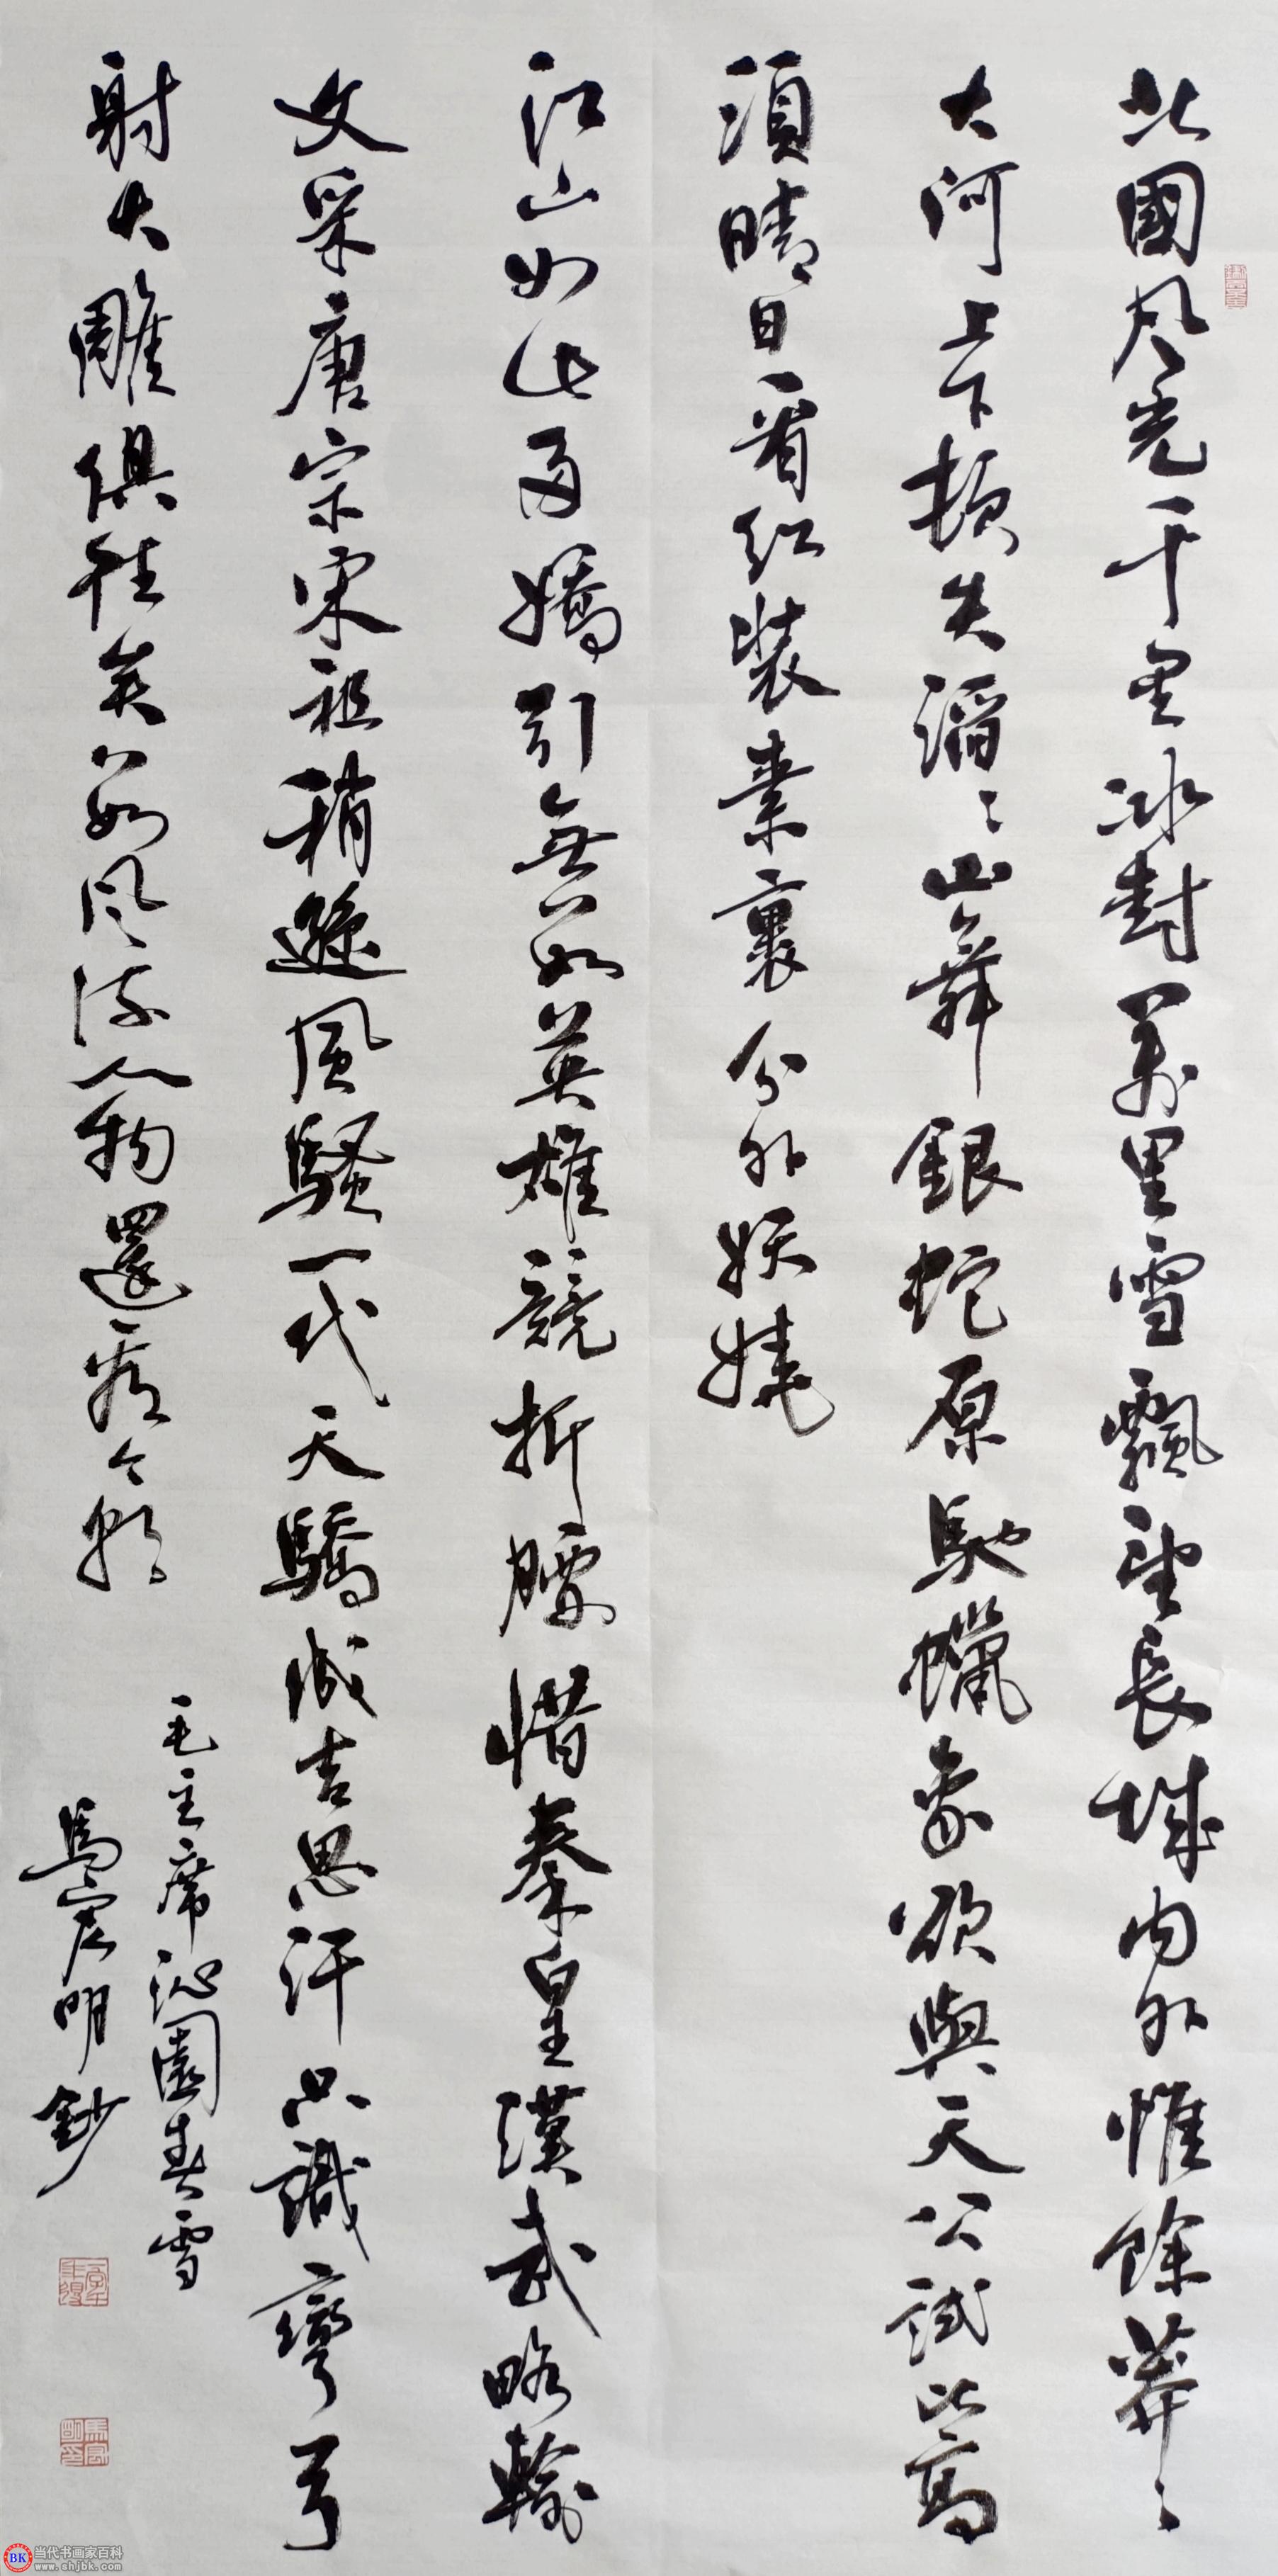 北國风光千里冰封萬里雪飄望長城內外惟餘莽〻
大河上下頓失滔〻山舞銀蛇原馳蠟象欲與天公試比高
須晴日看紅裝素裹分外妖嬈
江山如此多嬌引無數英雄競折腰惜秦皇漢武略輸
文采唐宗宋祖稍遜風騷一代天驕成吉思汗只識彎弓
射大雕俱往矣數风流人物還看今朝
毛主席沁園春雪
馬宏明鈔
BK 当代书画家百科
www.shjbk.com